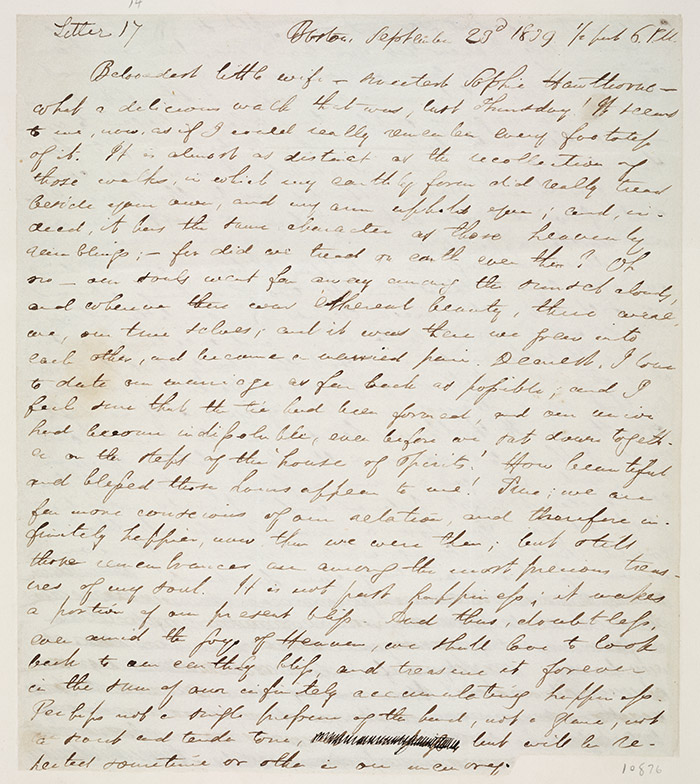 14
Letter 17
Boston, September 23d 1839 1/2 past 6. P.M.
Belovedest little wife — sweetest Sophie Hawthorne —
what a delicious walk that was, last Thursday! It seems
to me, now, as if I could really remember every footstep
of it. It is almost as distinct as the recollection of
those walks, in which my earthly form did really tread
beside your own, and my arm upheld you; and, in-
deed, it has the same character as those heavenly
ramblings; — for did we tread on earth even then? Oh
no — our souls went far away among the sunset clouds,
and wherever there was ethereal beauty, there were
we, our true selves; and it was there we grew into
each other, and became a married pair. Dearest, I love
to date our marriage as far back as possible; and I
feel sure that the tie had been formed, and our union
had become indissoluble, even before we sat down togeth-
er on the steps of the 'house of spirits.' How beautiful
and blessed those hours appear to me! True; we are
far more conscious of our relation, and therefore in-
finitely happier, now than we were then; but still
those remembrances are among the most precious treas-
ures of my soul. It is not past happiness; it makes
a portion of our present bliss. And thus, doubtless,
even amid the joys of Heaven, we shall love to look
back to our earthly bliss, and treasure it forever
in the sum of our infinitely accumulating happiness.
Perhaps not a single pressure of the hand, not a glance, not
a sweet and tender tone, but will be re-
peated sometime or other in our memory.
10876